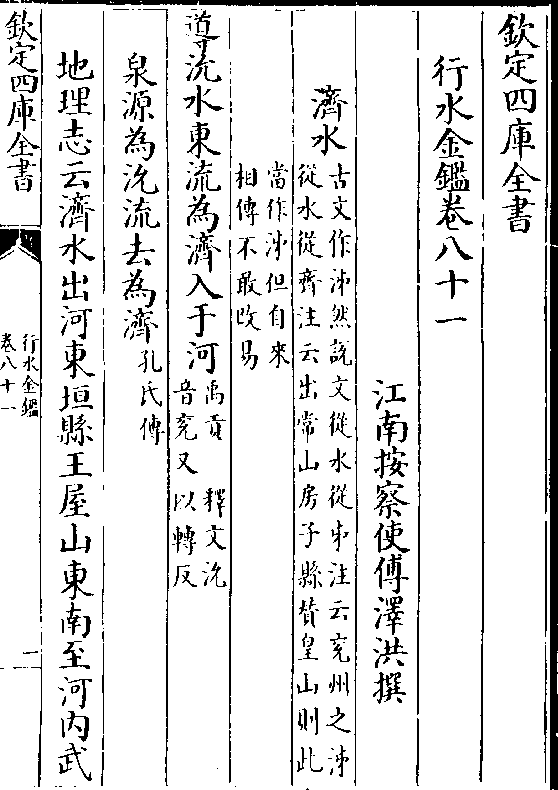 欽定四庫全書
行水金鑑卷八十一
江南按察使傅澤洪撰
濟水
古文作泲然說文從水從𠂔注云兖州之泲
從水從齊注云出常山房子縣賛皇山則此
當作泲但自來
相傳不敢改易
導沇水東流為濟入于河
禹貢　釋文沇
音兖又以轉反
泉源為沇流去為濟
孔氏傳
地理志云濟水出河東垣縣王屋山東南至河内武
欽定四庫全書
行水金鑑
卷八十一
一